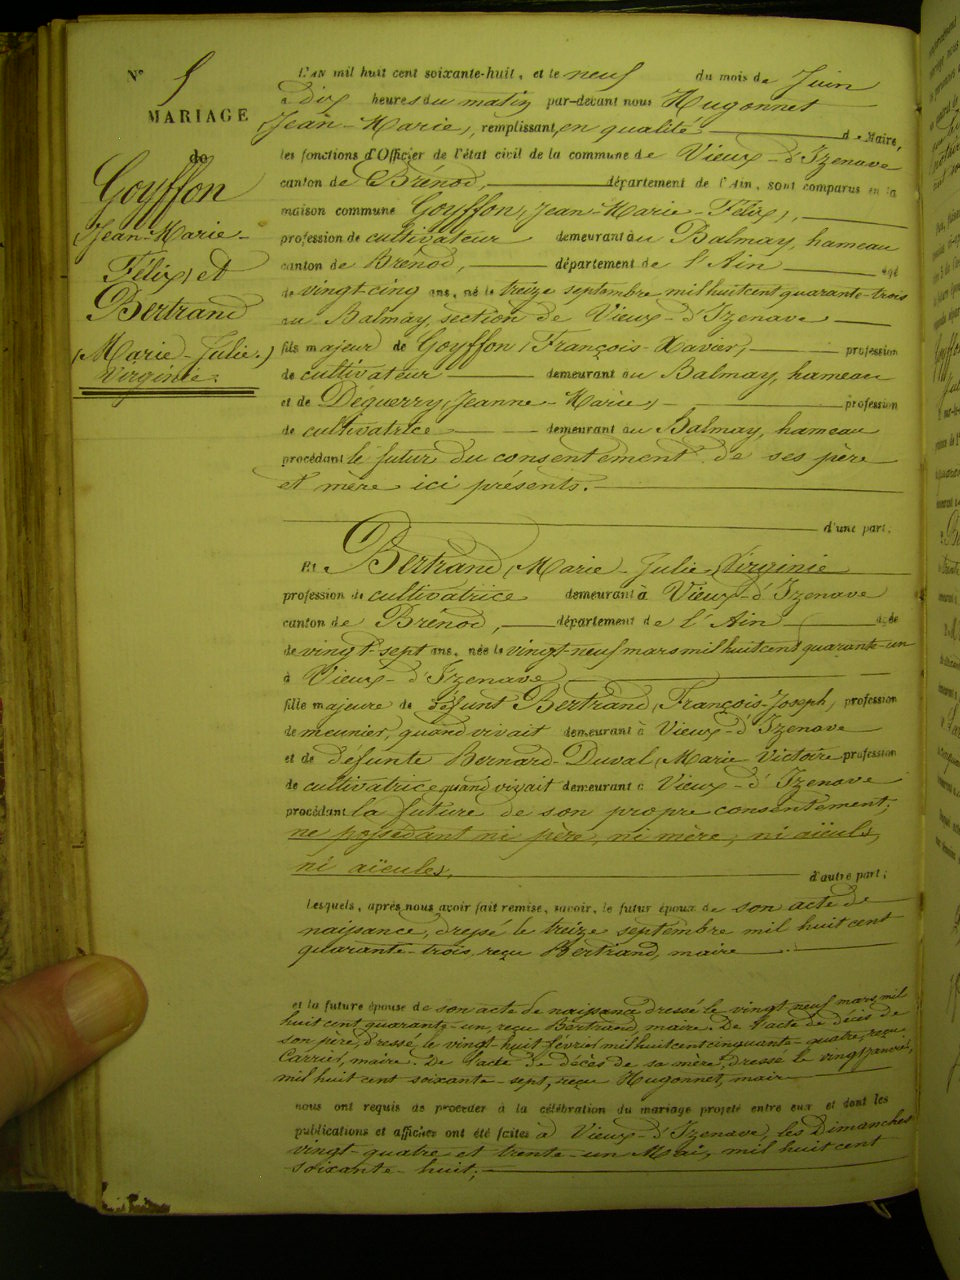 N° 5
MARIAGE
de
Goyffon
(Jean-Marie-
Félix) et
Bertrand
(Marie-Julie-)
Virginie.
L'AN mil huit cent soixante-huit, et le neuf du mois de Juin
à dix heures du matin par-devant nous Hugonnet
(Jean-Marie), remplissant, en qualité de Maire,
les fonctions d'Officier de l'état civil de la commune de Vieux-d'Izenave
canton de Brénod, département de l'Ain, sont comparus en la
maison commune Goyffon (Jean-Marie-Félix),
profession de cultivateur demeurant au Balmay, hameau
canton de Brenod, département de l'Ain âgé
de vingt-cinq ans, né le treize septembre mil huit cent quarante-trois
au Balmay, section de Vieux-d'Izenave
fils majeur de Goyffon (François-Xavier) profession
de cultivateur demeurant au Balmay, hameau
et de Deguerry (Jeanne-Marie) profession
de cultivatrice demeurant au Balmay, hameau
procédant le futur du consentement de ses père
et mère ici présents.
d'une part.
Et Bertrand (Marie-Julie-Virginie
profession de cultivatrice demeurant à Vieux-d'Izenave
canton de Brénod, département de l'Ain âgée
de vingt-sept ans, née le vingt-neuf mars mil huit cent quarante-un
à Vieux-d'Izenave
fille majeure de défunt Bertrand (François-Joseph) profession
de meunier, quand vivait demeurant à Vieux-d'Izenave
et de défunte Bernard-Duval (Marie Victoire profession
de cultivatrice quand vivait demeurant à Vieux-d'Izenave
procédant la future de son propre consentement;
ne possédant ni père, ni mère, ni aïeuls,
ni aïeules, d'autre part;
Lesquels, après nous avoir fait remise, savoir, le futur époux de son acte de
naissance, dressé le treize septembre mil huit cent
quarante-trois, reçu Bertrand, maire
et la future épouse de son acte de naissance dressé le vingt neuf mars mil
huit cent quarante-un, reçu Bertrand, maire. De l'acte de décès de
son père, dressé le vingt-huit février mil huit cent cinquante-quatre, reçu
Carrier, maire. De l'acte de décès de sa mère, dressé le vingt janvier,
mil huit cent soixante-sept, reçu Hugonnet, maire
nous ont requis de procéder à la célébration du mariage projeté entre eux et dont les
publications et affiches ont été faites à Vieux-d'Izenave, les Dimanches
vingt-quatre et trente-un Mai, mil huit cent
soixante-huit;